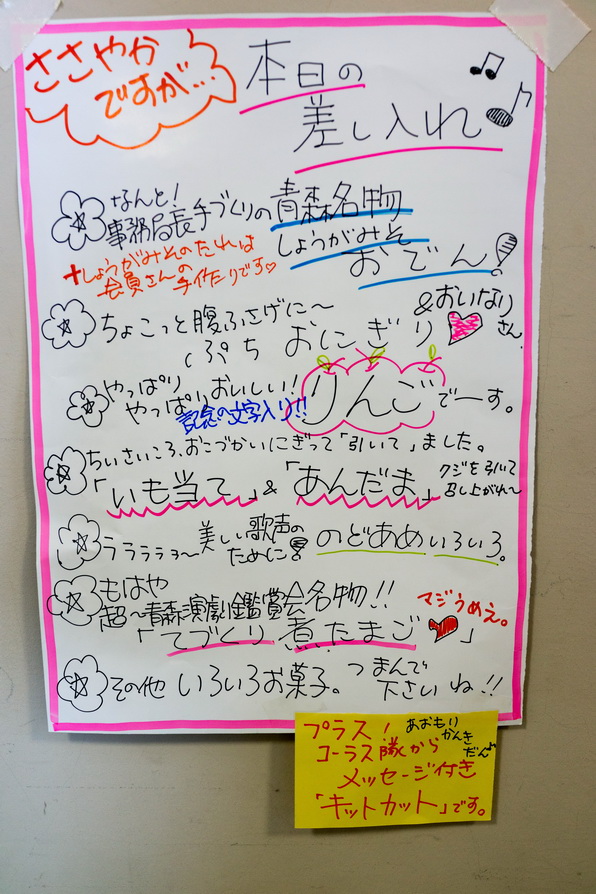 ささやか
ですが…
本日の
差し入れ
なんと!
事務局長手づくりの青森名物
しょうがみそ
おでん!
+しょうがみそのたれは
会員さんの手作りです♡
ちょこっと腹ふさげに〜
ぷち おにぎり
&おいなりさん
やっぱり
やっぱりおいしい!
記念の文字入り!!
りんごでーす。
ちいさいころ、おこづかいにぎって「引いて」ました。
「いも当て」&「あんだま」
クジを引いて
召し上がれ〜
ララララョ〜
美しい歌声の
ために!
のどあめいろいろ。
もはや
超〜青森演劇鑑賞会名物!!
「てづくり煮たまご♥」
マジうめえ。
その他 いろいろお菓子。つまんで
下さいね!!
プラス!
あおもり
かんき
だん♪
コーラス隊から
メッセージ付き
「キットカット」です。